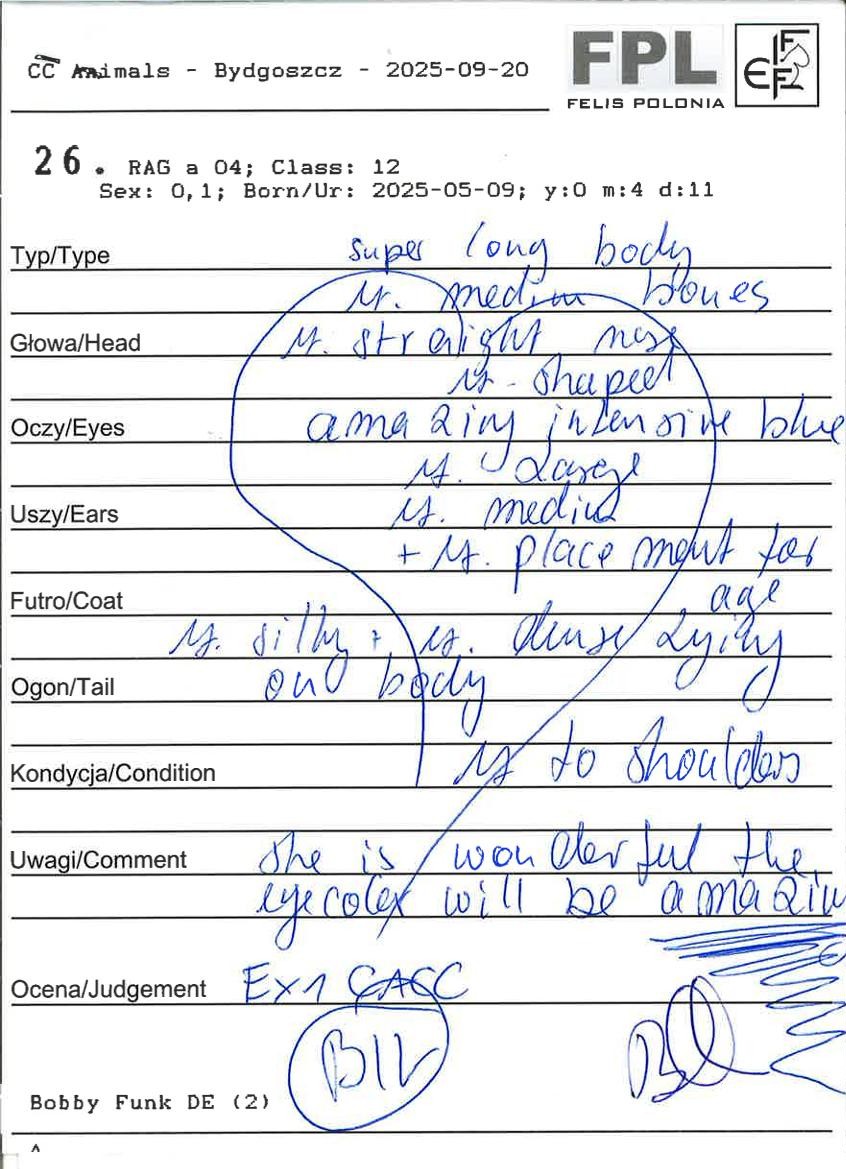 CC Animals - Bydgoszcz - 2025-09-20
FPL
FELIS POLONIA
FIFe
26. RAG a 04; Class: 12
Sex: 0,1; Born/Ur: 2025-05-09; y:0 m:4 d:11
Typ/Type super long body
medium bones
Głowa/Head straight nose
shaped
Oczy/Eyes amazing intensive blue
large
Uszy/Ears medium
+ placement for
Futro/Coat age
silky + dense lying
on body
Ogon/Tail
Kondycja/Condition to shoulders
Uwagi/Comment she is wonderful the
eyecolor will be amazing
Ocena/Judgement Ex1 CACC
BIV
Bobby Funk DE (2)